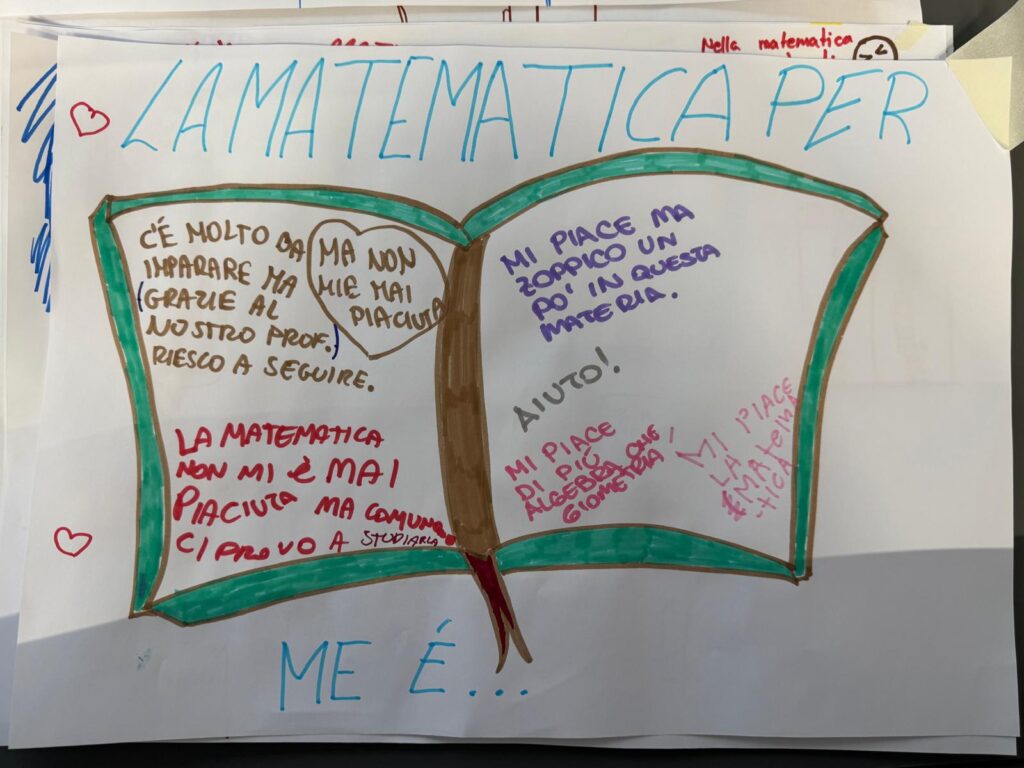 Nella matematica
LA MATEMATICA PER
C'È MOLTO DA
IMPARARE MA
(GRAZIE AL
NOSTRO PROF.)
RIESCO A SEGUIRE.
MA NON
MIE MAI
PIACIUTA
LA MATEMATICA
NON MI È MAI
PIACIUTA MA COMUNQ.
CI PROVO A STUDIARLA
MI PIACE MA
ZOPPICO UN
PO' IN QUESTA
MATERIA.
AIUTO!
MI PIACE
DI PIÙ
ALGEBRA CHE
GIOMETRIA
MI PIACE
LA
MATEMA
TICA
ME É...